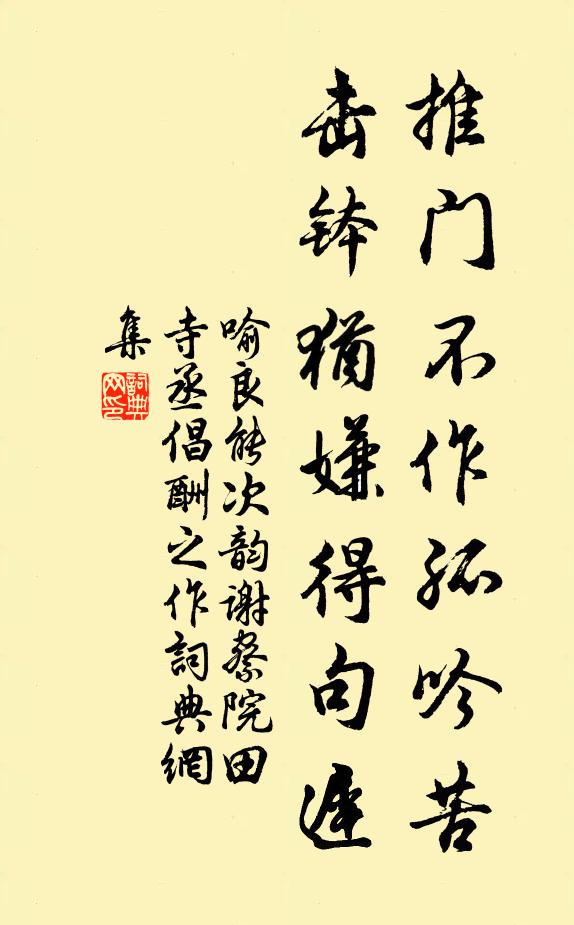 推门不作孤吟苦
击钵犹嫌得句遲
喻良能次韵谢察院田
寺丞倡酬之作詞典網
集
詞典
网印